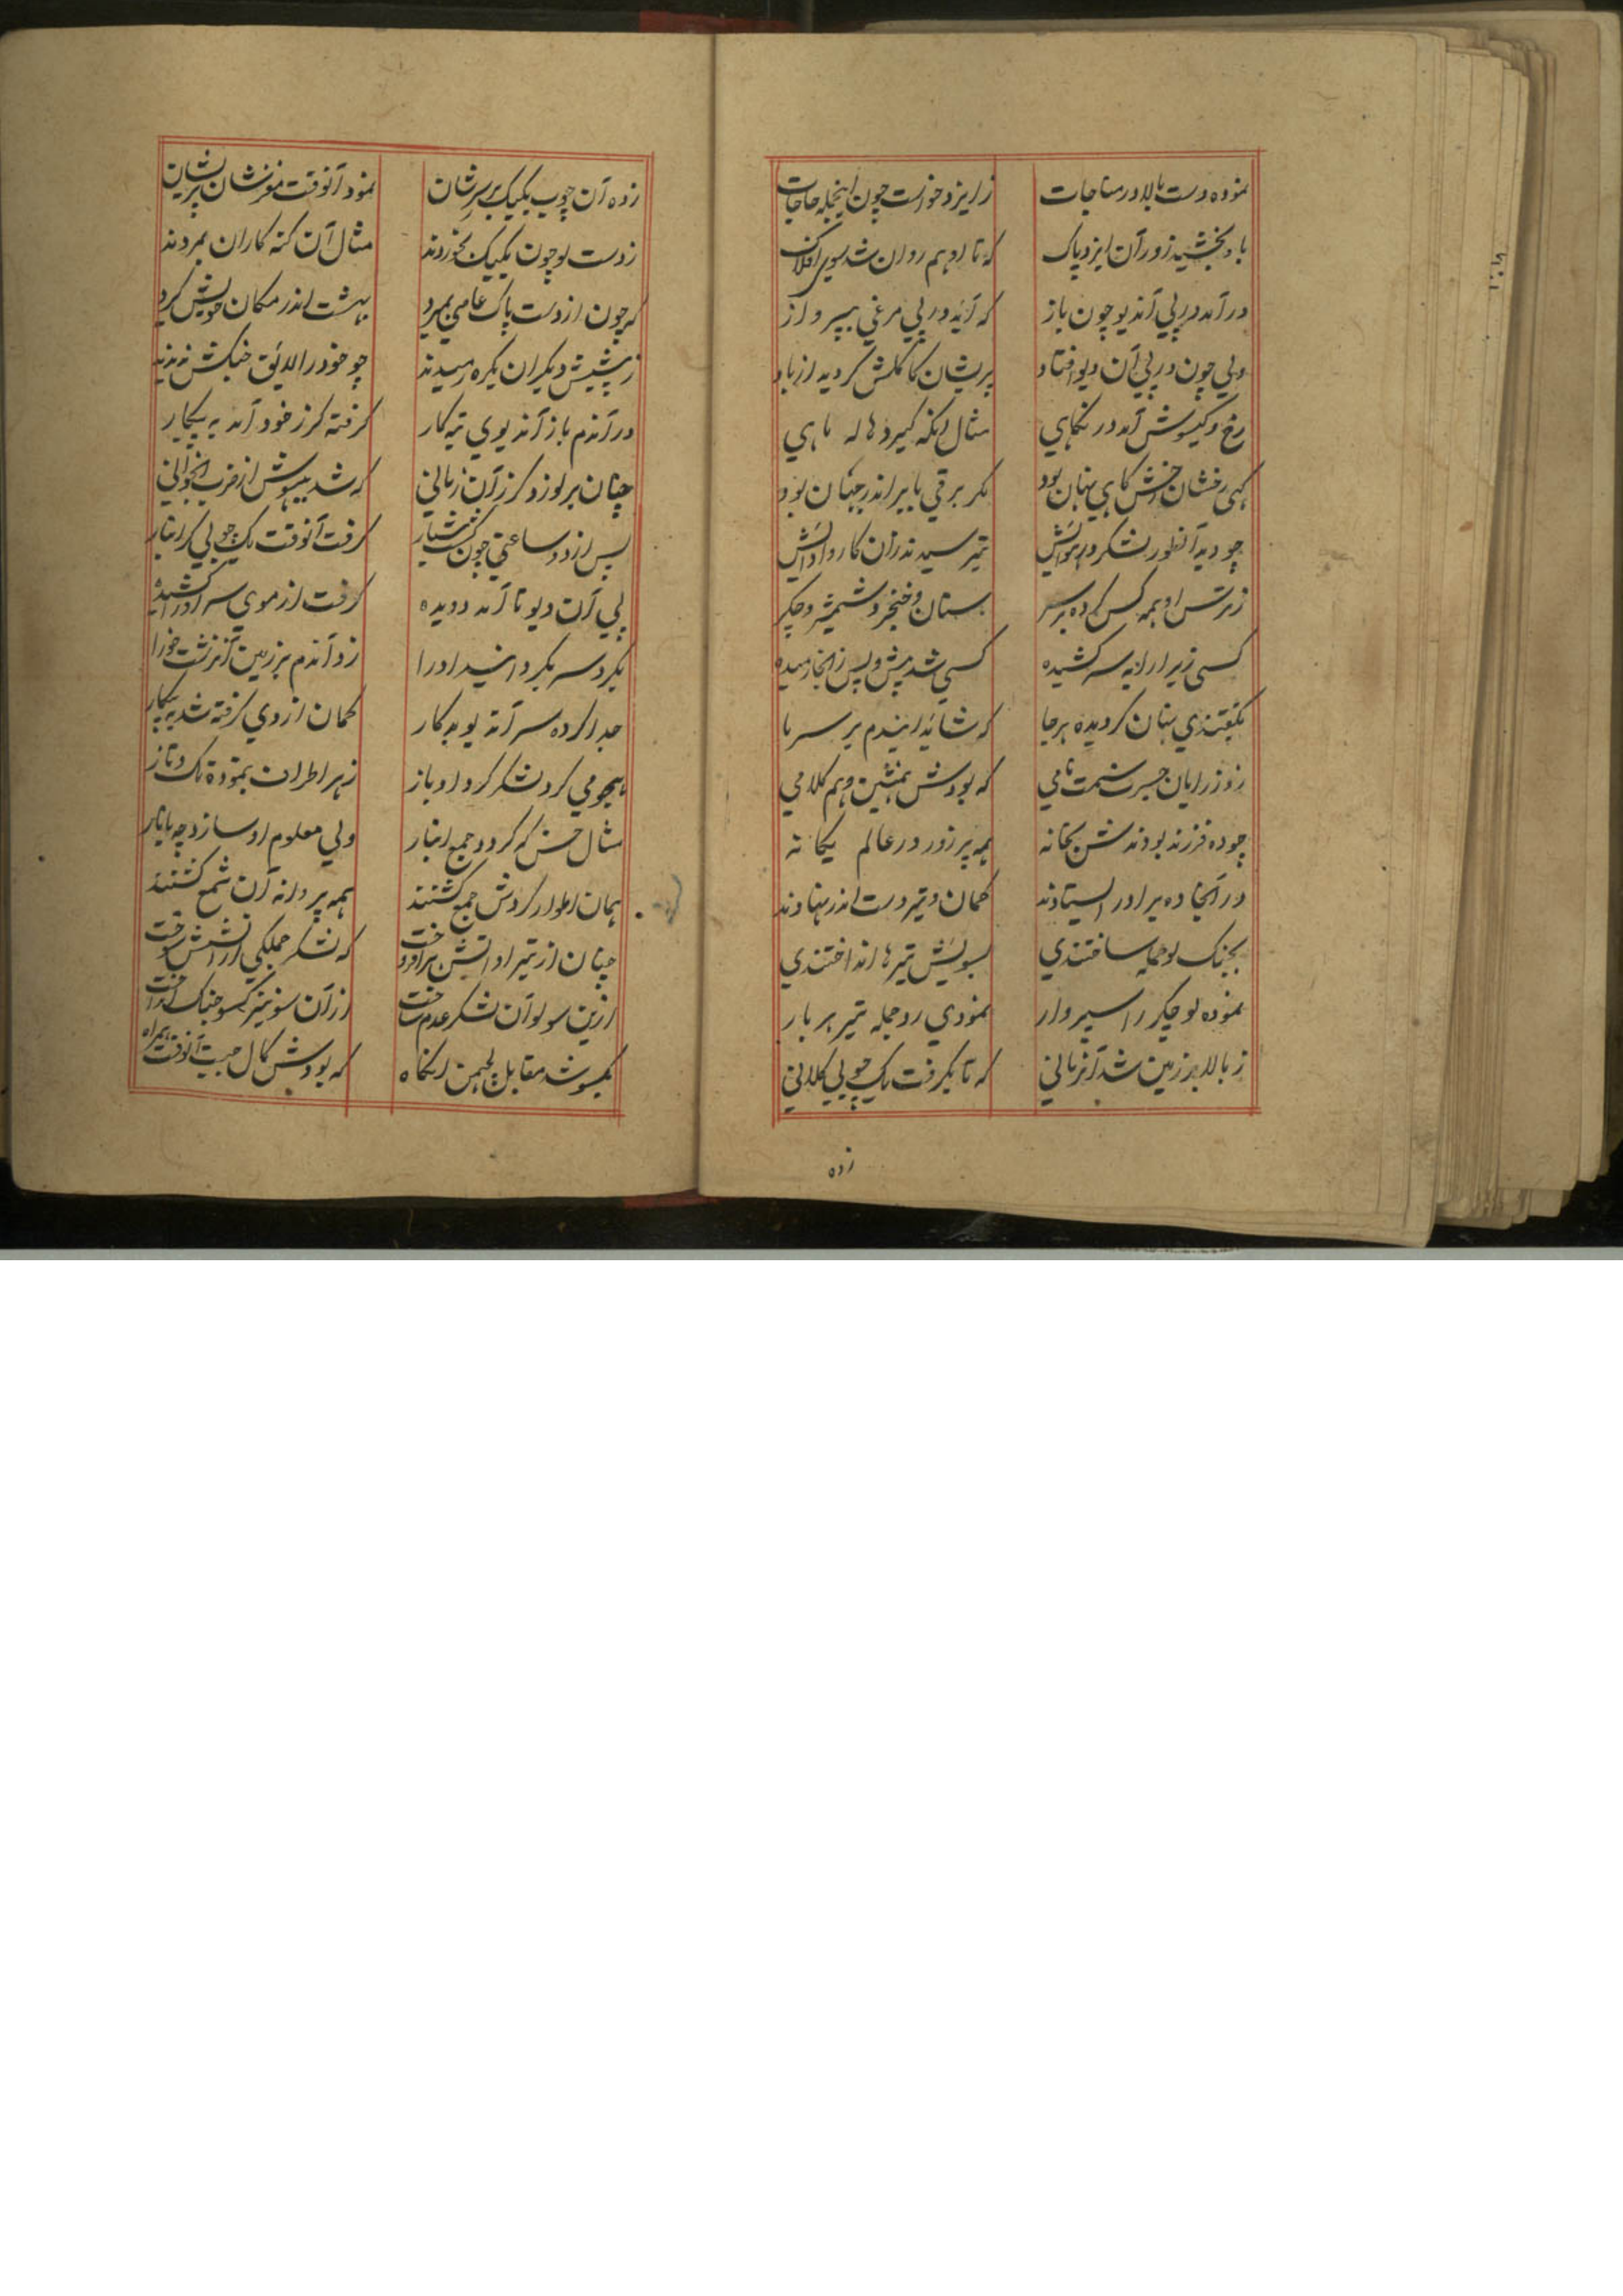 نموده دست بالا در مناجات
ز ایزد خواست چون اینجمله حاجات
باو بخشید زور آن ایزد پاک
که تا او هم روان شد سوی افلاک
در آمد در پی آندیو چون باز
که آید در پی مرغی بپرواز
ولی چون در پی آن دیو افتاد
پریشان کاکلش کردیه از باد
رخ و کیسوش آمد در نکاهی
مثال آنکه کیرد هاله ماهی
کهی رخشان رخش کاهی پنهان بود
مکر برقی بابر اندر جهان بود
چو دید آنطور لشکر در هوایش
بترسیدند زان کار و ادایش
ز ترس او همه کس کرده بر سر
سنان و خنجر و شمشیر و چکر
کسی زیر ارابه سر کشیده
کسی شد پیش و پس زانجا رمیده
بگفتندی پنهان کردیده بر جا
که شاید ایندم بر سر ما
که بودش همنشین و هم کلامی
چو ده فرزند بودند شن بخانه
همه پر زور در عالم یکانه
در آنجا ده برادر ایستادند
کمان و تیر دست اندر نهادند
بجنک او جمله ساختندی
بسویش تیرها انداختندی
نموده او چکر را سپر وار
نمودی رد جمله تیر هر بار
ز بالا بر زمین شد آنزمانی
که تا بگرفت یک چوبی کلانی
زده
زده آن چوب یکیک بر سر شان
نمود آنوقت مغز شان پریشان
ز دست او چون یکیک بخوردند
مثال آن کنه کاران بمردند
که چون از دست پاک عاصی بمیرد
بهشت اندر مکان خویش کیرد
ز پیشش دیکران یکره رمیدند
چو خود را لایق جنکش ندیدند
در آندم باز آندیوی تبه کار
کرفته کرز خود آمد به پیکار
چنان بر او زد کرز آن زمانی
که شد بیهوش از ضرب انجوانی
پس از دو ساعتی چون کشت هشیار
کرفت آنوقت یک چوبی کرانبار
پی آن دیو تا آمد دویده
کرفت از موی سر او را کشیده
بکرد سر بکردانید او را
زد آندم بر زمین آنزشت خو را
جدا کرده سر آندیو بدکار
کمان از وی کرفته شد به پیکار
هجومی کرد لشکر کرد او باز
ز هر اطراف بنموده تک و تاز
مثال خس که کردد جمع انبار
ولی معلوم او سازد چه با نار
همان اطوار کردش جمع کشتند
همه پروانه آن شمع کشتند
چنان از تیر او آتش بر افروخت
که لشکر جملکی از آتشش سوخت
ازین سو او آن لشکر عدم ساخت
از آن سو نیز کیسو جنک انداخت
بکیسو شد مقابل لچهمن انکاه
که بودش کمال حبیت آنوقت همراه